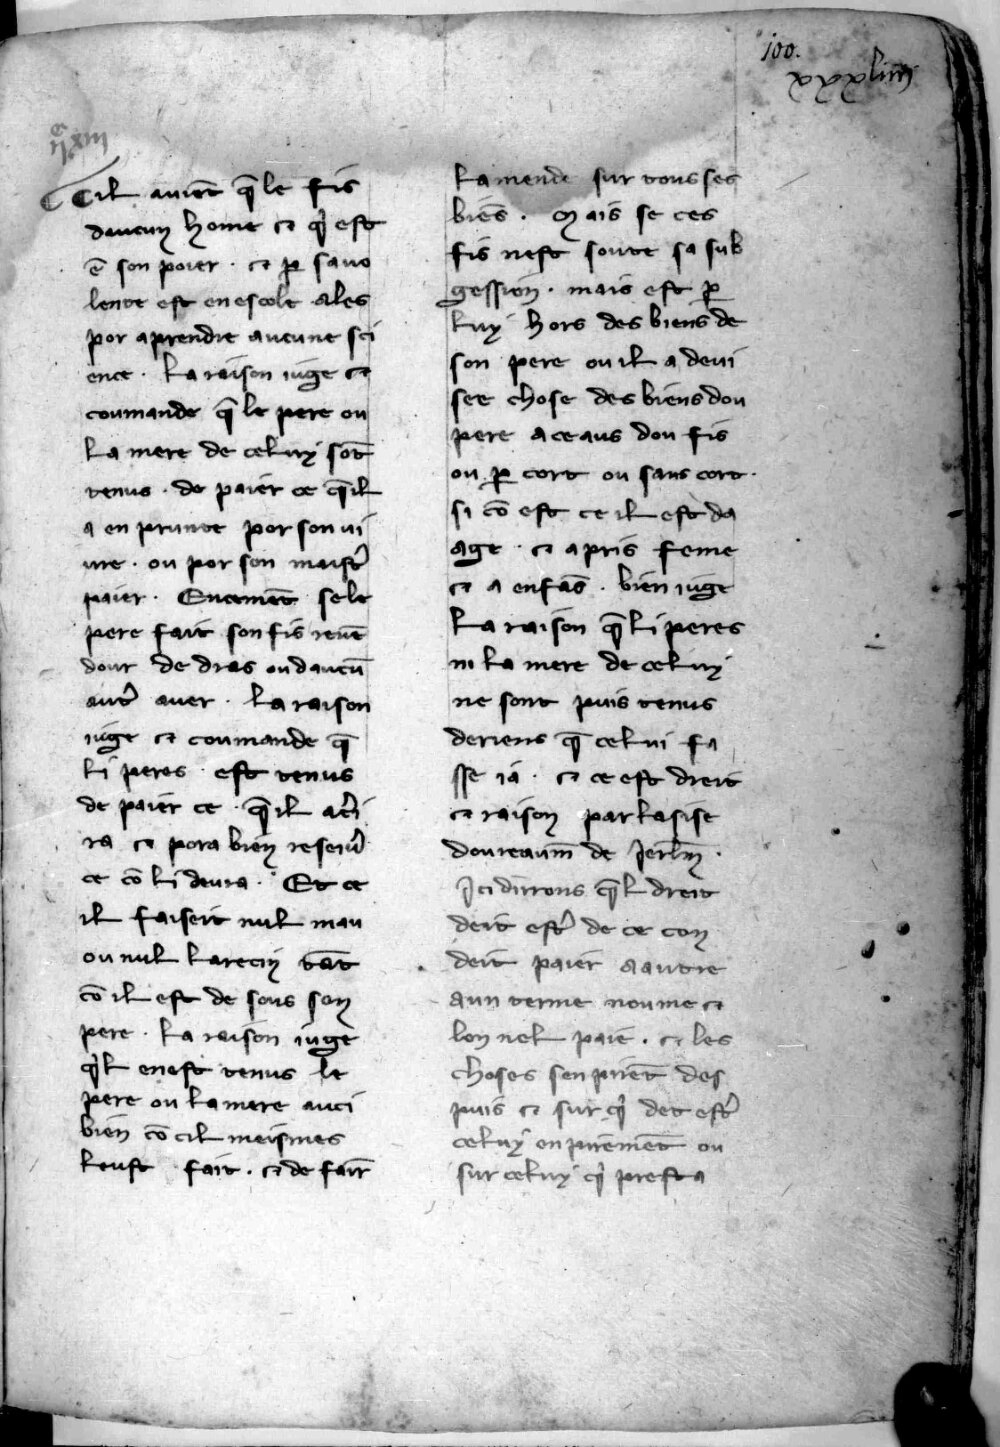 100.
xxxliiij
Cil avient q̃ le fis
daucun home ⁊ q̃ est
ẽ son poier · ⁊ p̱ sa vo
lente est en escole ales
por aprendre aucune sci
ence · La raison iuge ⁊
coumande q̃ le pere ou
la mere de celuy sõt
tenus · de paier ce q̃ il
a en prunte por son ui
ure · ou por son maistr̃
paier · Encement se le
pere fait son fis reuẽ
dour de dras ou daucũ
autr̃ auer · La raison
iuge ⁊ coumande q̃
li peres est tenus
de paier ce · q̃ il
ra ⁊ pora bien
ce cõ li deura · Et ce
il faiseit nul mau
ou nul larecin tãt
cõ il est de sous son
pere · La raison iuge
q̃l en est tenus le
pere ou la mere auci
bien cõ cil meismes
leust fait · ⁊ de fair̃
lamende sur tous ses
biẽs · Mais se ces
fis nest soute sa sub
gession · mais est p̱
luy hors des biens de
son pere ou il a deui
see chose des biens dou
pere a ceaus dou fis
ou p̱ cort ou sans cort ·
si cõ est ce il est da
age · ⁊ a pris feme
⁊ a enfãs · bien iuge
la raison q̃ li peres
ni la mere de celuy
ne sont puis tenus
de riens q̃ celui fa
sse ia · ⁊ ce est dreit
⁊ raison par lasise
dou reaum̃ de Jerlm̃ ·
Ici dirrons q̃l dreit
deit estr̃ de ce con
deit paier a autre
a un terme noume ⁊
lon nel paie · ⁊ les
choses sen piẽt des
puis ⁊ sur q̃ det estr̃
celuy enpirement ou
sur celuy q̃ presta